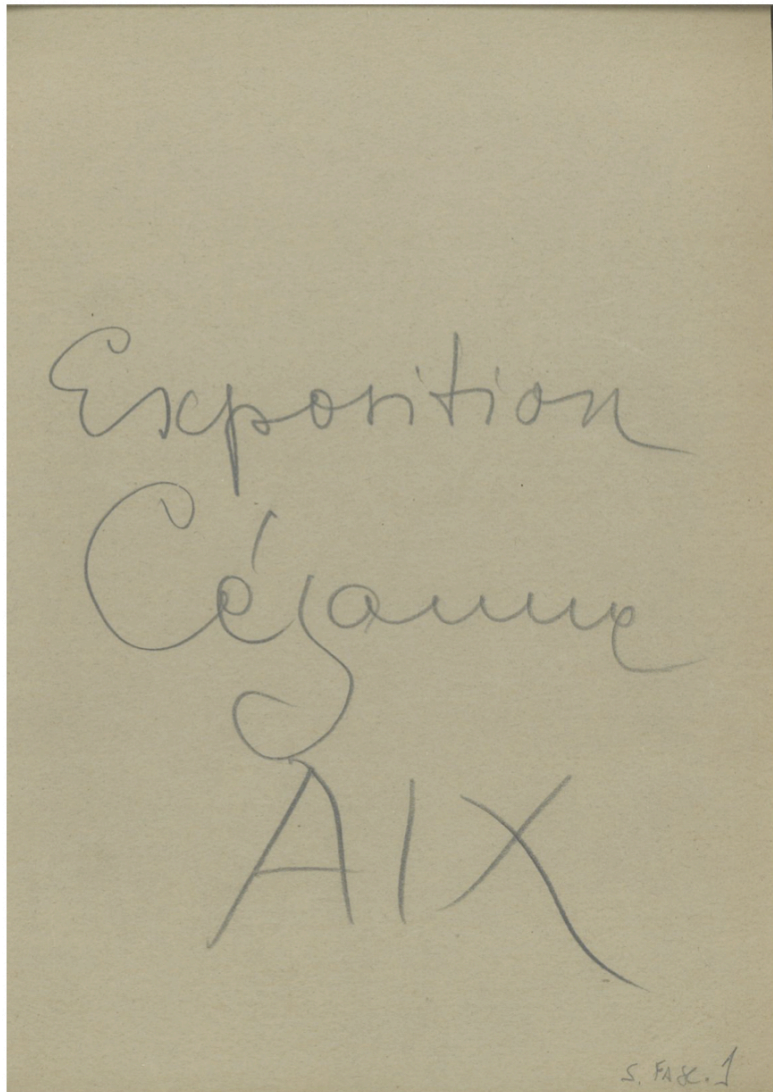 Exposition
Cézanne
AIX
S. FASC. 1